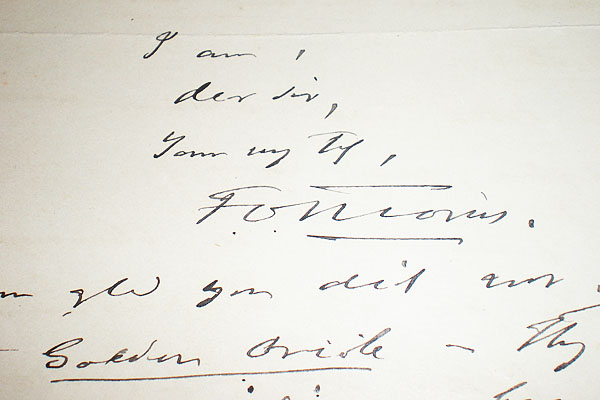 I am,
dear sir,
Yours very truly,
F.O. Morris.
glad you did not
Golden Oriole – They